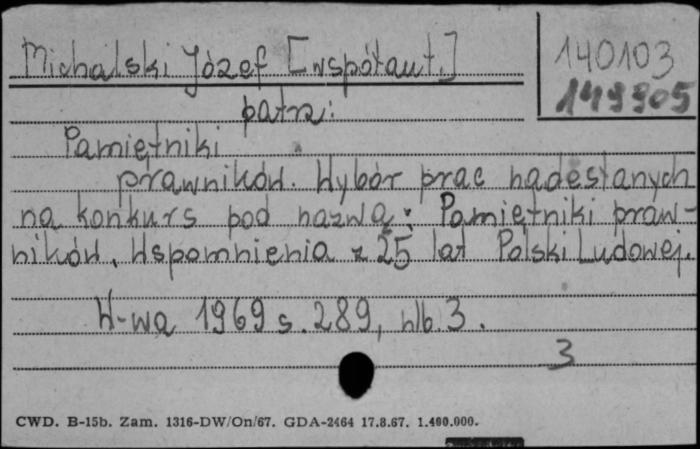 Michalski Józef [współaut.]
140103
149905
patrz:
Pamiętniki
prawników. Wybór prac nadesłanych
na konkurs pod nazwą: Pamiętniki praw-
ników. Wspomnienia z 25 lat Polski Ludowej.
W-wa 1969 s. 289, nlb. 3.
3
CWD. B-15b. Zam. 1316-DW/On/67. GDA-2464 17.8.67. 1.400.000.